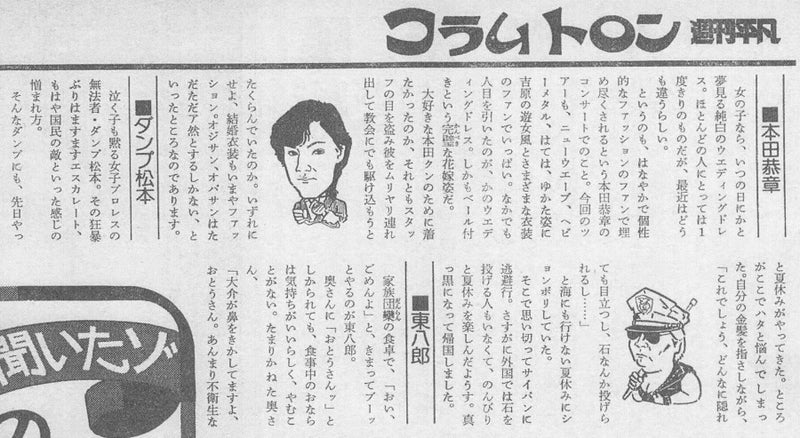 コラムトロン 週刊平凡
■本田恭章
女の子なら、いつの日にかと
夢見る純白のウエディングドレ
ス。ほとんどの人にとっては1
度きりのものだが、最近はどう
も違うらしい。
というのも、はなやかで個性
的なファッションのファンで埋
め尽くされるという本田恭章の
コンサートでのこと。今回のツ
アーも、ニューウエーブ、ヘビ
ーメタル、はては、ゆかた姿に
吉原の遊女風とさまざまな衣装
のファンでいっぱい。なかでも
人目を引いたのが、かのウエデ
ィングドレス。しかもベール付
きという完璧な花嫁姿だ。
大好きな本田クンのために着
たかったのか、それともスタッ
フの目を盗み彼をムリヤリ連れ
出して教会にでも駆け込もうと
たくらんでいたのか。いずれに
せよ、結婚衣装もいまやファッ
ション。オジサン、オバサンはた
だただア然とするしかない、と
いったところなのであります。
■ダンプ松本
泣く子も黙る女子プロレスの
無法者・ダンプ松本。その狂暴
ぶりはますますエスカレート、
もはや国民の敵といった感じの
憎まれ方。
そんなダンプにも、先日やっ
と夏休みがやってきた。ところ
がここでハタと悩んでしまっ
た。自分の金髪を指さしながら、
「これでしょう、どんなに隠れ
ても目立つし、石なんか投げら
れるし……」
と海にも行けない夏休みにシ
ョンボリしていた。
そこで思い切ってサイパンに
逃避行。さすがに外国では石を
投げる人もいなくて、のんびり
と夏休みを楽しんだようす。真
っ黒になって帰国しました。
■東八郎
家族団欒の食卓で、「おい、
ごめんよ」と、きまってブーッ
とやるのが東八郎。
奥さんに「おとうさんッ」と
しかられても、食事中のおなら
は気持ちがいいらしく、やむこ
とがない。たまりかねた奥さ
ん、
「大介が鼻をきかしてますよ、
おとうさん。あんまり不衛生な
聞いたゾ
の